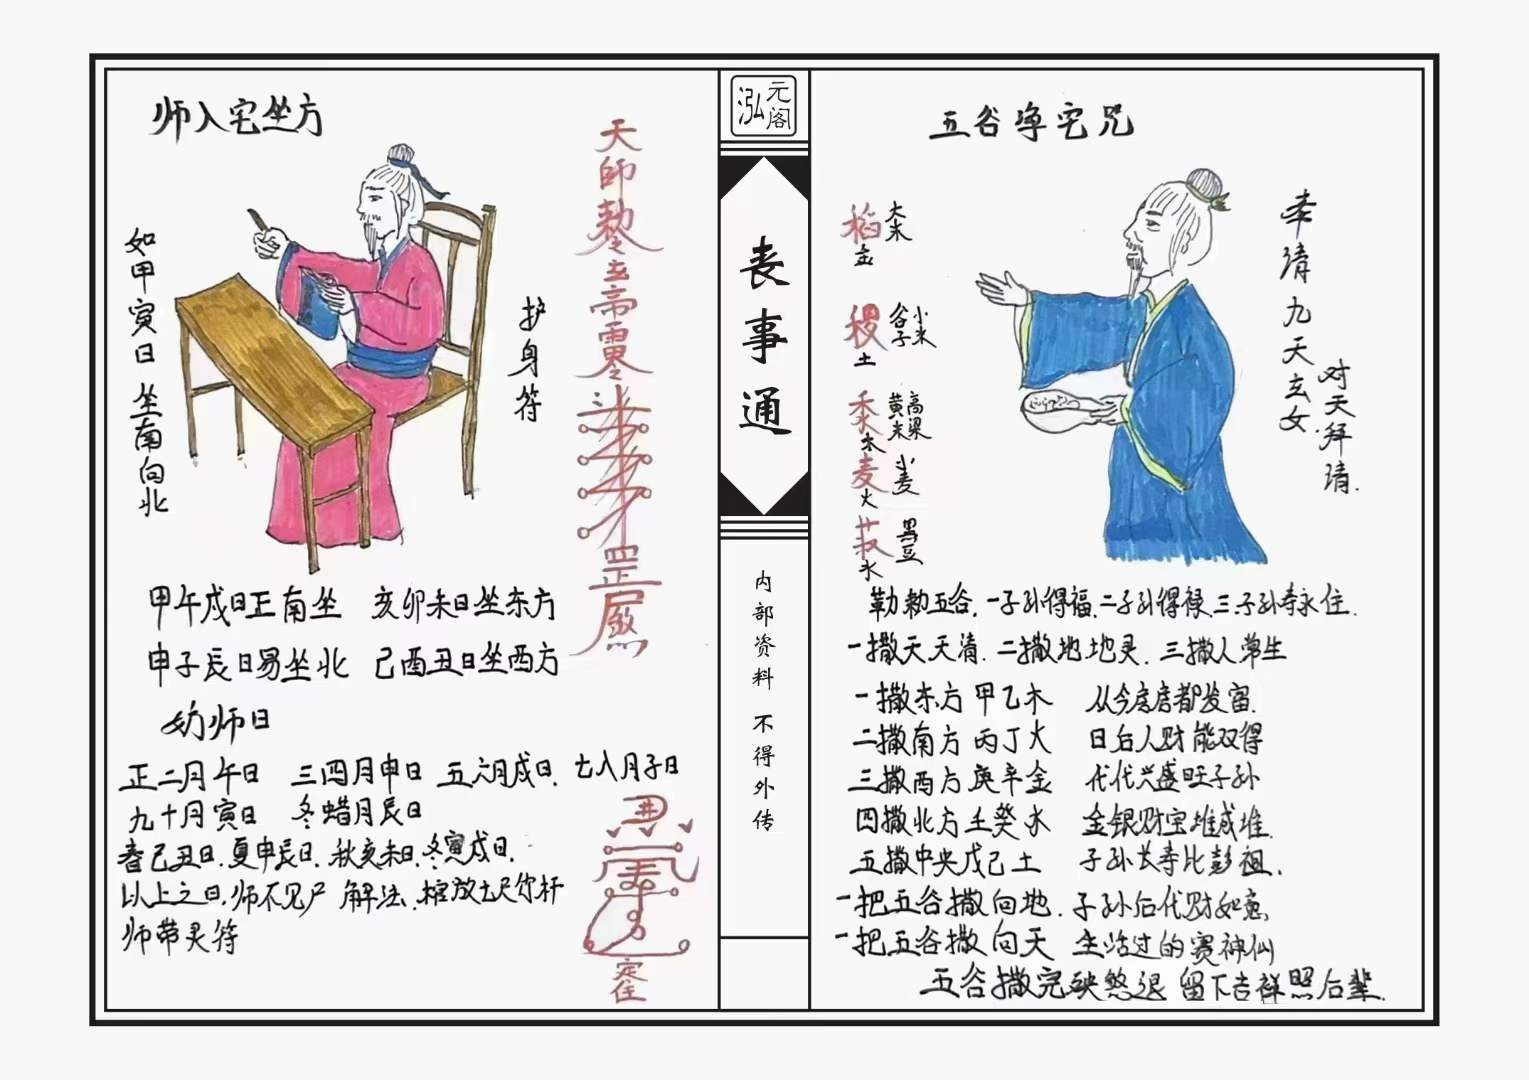 师入宅坐方
如甲寅日坐南向北
护身符
天師
罡煞
甲午戌日正南坐 亥卯未日坐东方
申子辰日易坐北 己酉丑日坐西方
妨师日
正二月午日 三四月申日 五六月戌日、七八月子日
九十月寅日 冬蜡月辰日
春己丑日、夏申辰日、秋亥未日、冬寅戌日、
以上之日、师不见尸 解法、棺放七尺竹杆
师带灵符
元阁
泓
丧事通
内部资料 不得外传
五谷净宅咒
稻 大米
金
稷 谷子 小米
土
黍 黄米 高梁
木
麦 小麦
火
菽 黑豆
水
奉请九天玄女
对天拜请.
勒勅五谷, 一子孙得福、二子孙得禄、三子孙寿永住.
一撒天天清、二撒地地灵、三撒人常生
一撒东方甲乙木 从今房房都发富.
二撒南方丙丁火 日后人财能双得
三撒西方庚辛金 代代兴盛旺子孙
四撒北方壬癸水 金银财宝堆成堆.
五撒中央戊己土 子孙长寿比彭祖.
一把五谷撒向地、子孙后代财如意
一把五谷撒向天 生活过的赛神仙
五谷撒完殃煞退 留下吉祥照后辈.